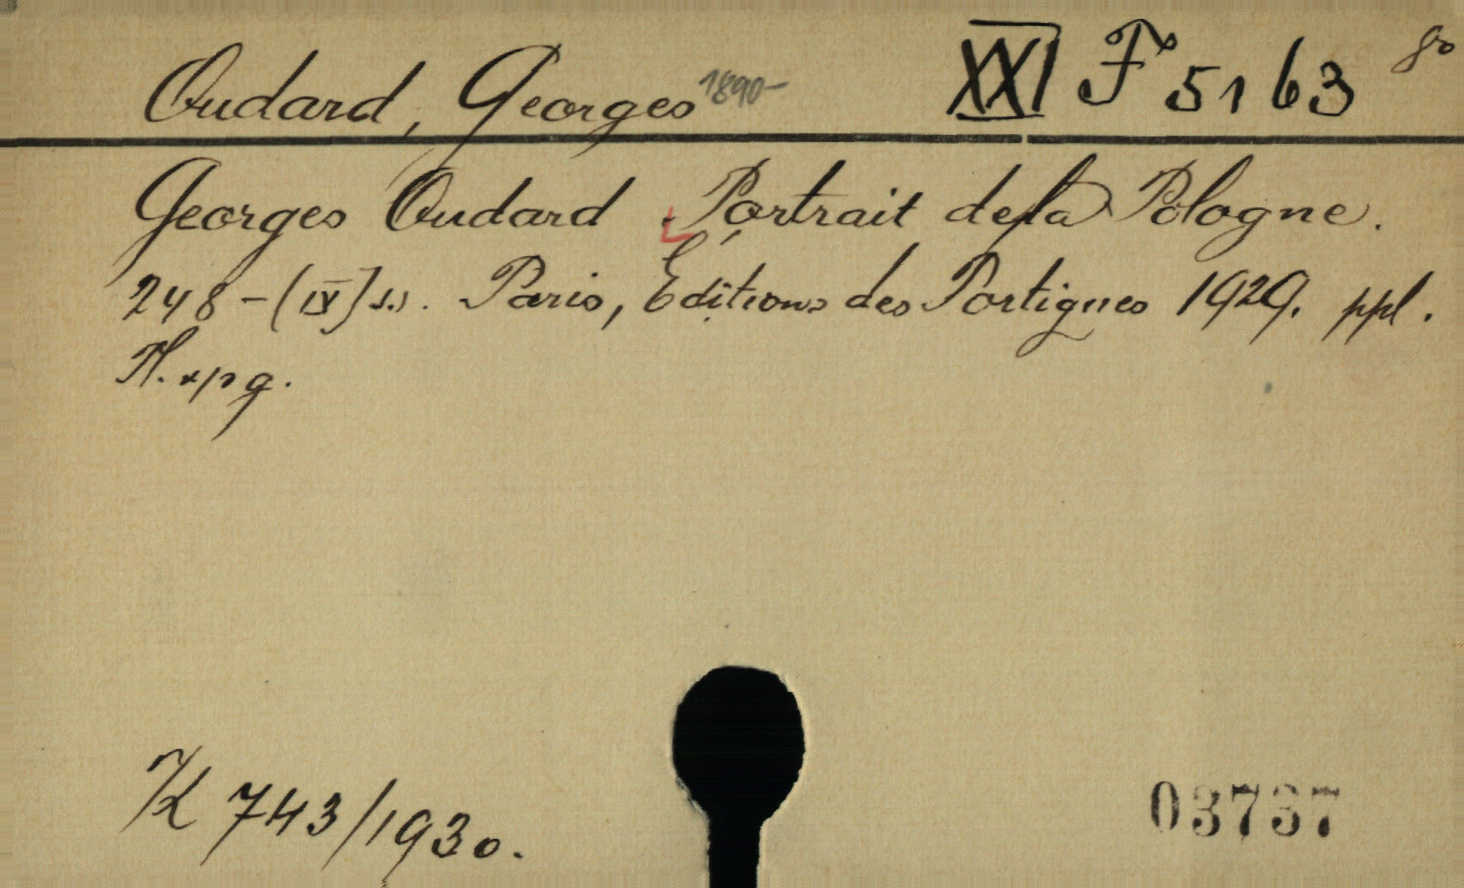 Oudard, Georges 1890- XXI F 5163 8o
Georges Oudard . Portrait de la Pologne.
248-(IV) s. Paris, Éditions des Portiques 1929. ppl.
K 743/1930.
03737